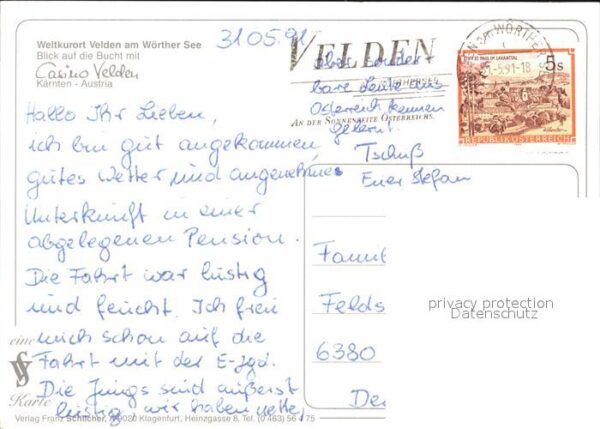 Weltkurort Velden am Wörther See
Blick auf die Bucht mit
Casino Velden
Kärnten - Austria
31.05.91
Hallo Ihr Lieben,
ich bin gut angekommen,
gutes Wetter und angenehmes
Unterkunft in einer
abgelegenen Pension.
Die Fahrt war lustig
und feucht. Ich freu
mich schon auf die
Fahrt mit der E-Jgd.
Die Jungs sind äußerst
lustig, wir haben nette,
aber sonder-
bare Leute aus
Österreich kennen
gelernt.
Tschuß
Euer Stefan
VELDEN
AN DER SONNENSEITE ÖSTERREICHS.
-5.91-18
5s
REPUBLIK ÖSTERREICH
Famil
Felds
6380
De
privacy protection
Datenschutz
eine
Karte
Verlag Franz Schilcher, 9020 Klagenfurt, Heinzgasse 8, Tel. (0 463) 56 4 75